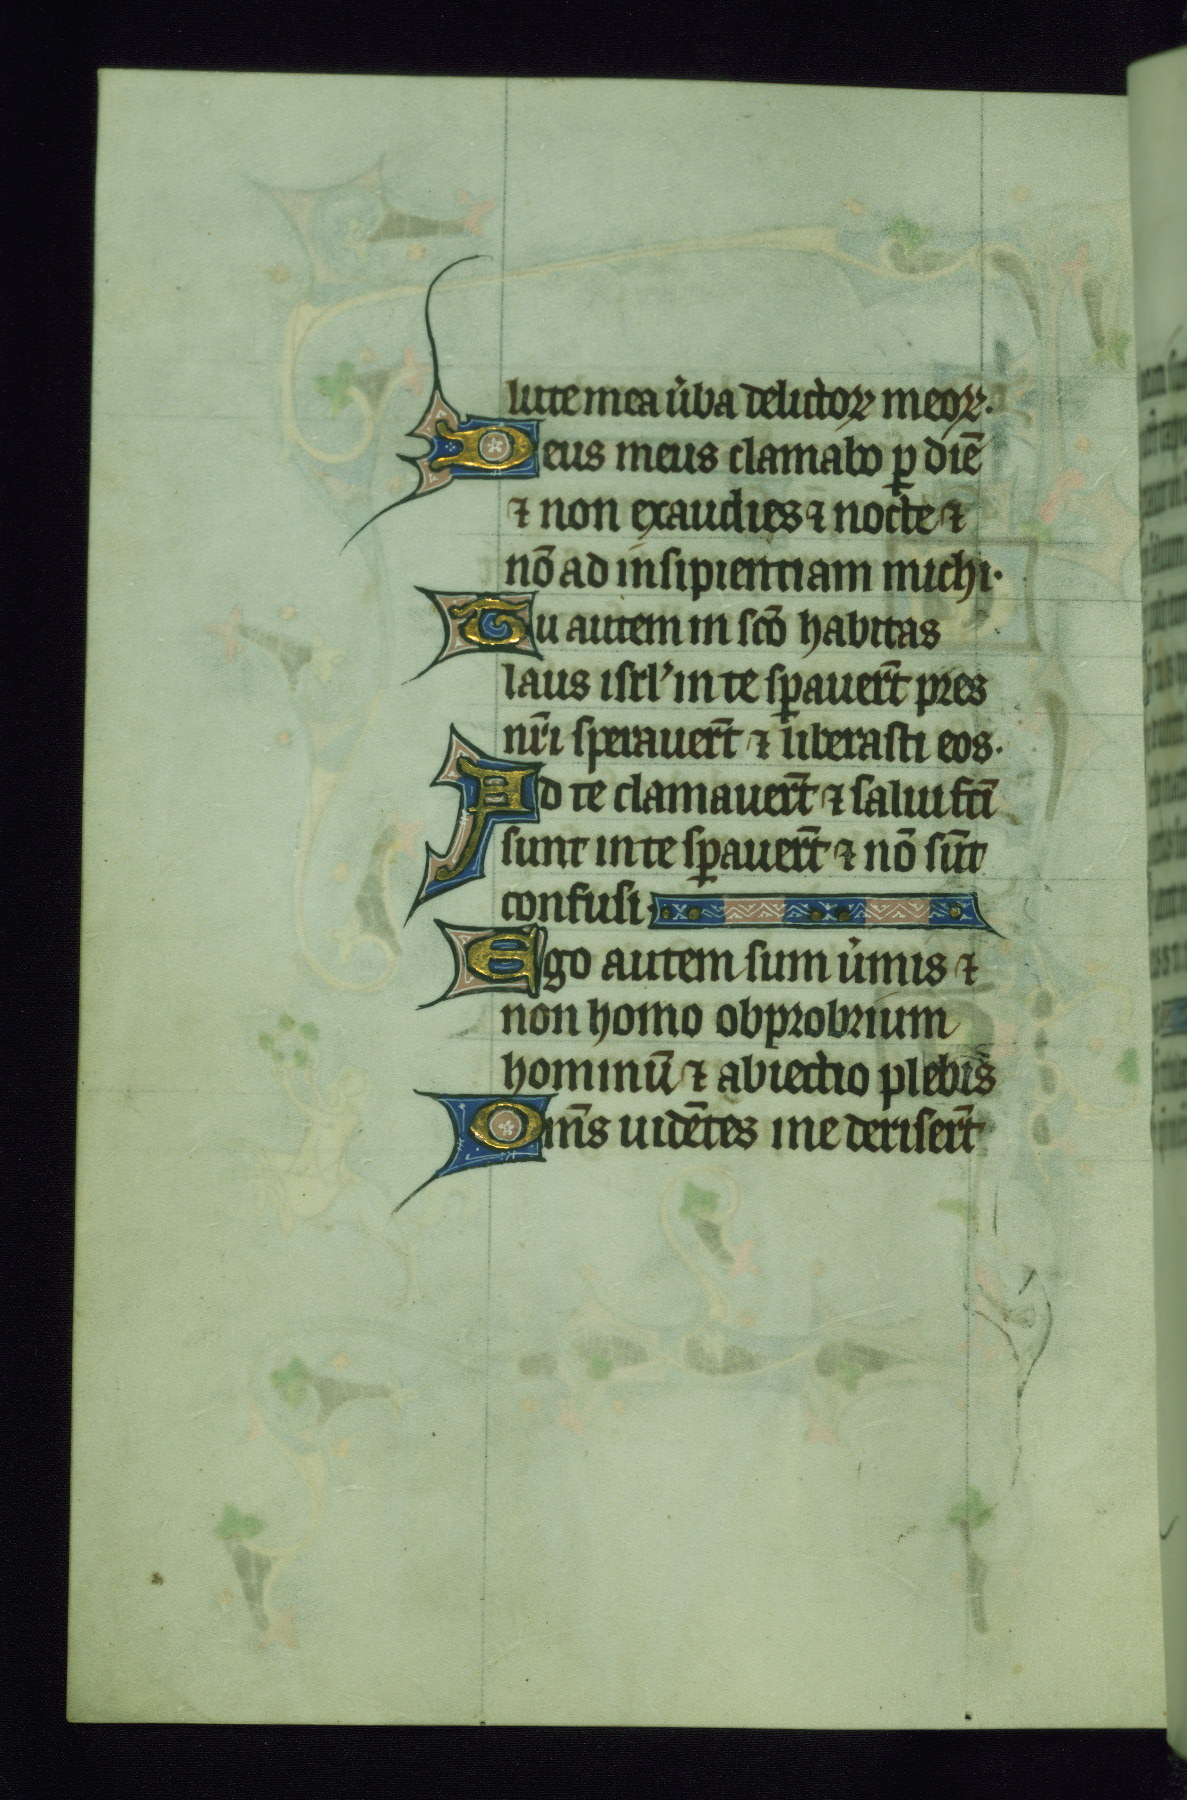 lute mea ůba delictoꝝ meoꝝ·
Deus meus clamabo ꝑ diē
⁊ non exaudies ⁊ nocte ⁊
nō ad insipientiam michi·
Tu autem in sc̄o habitas
laus isrl' in te sꝑauer̄t pr̄es
nr̄i sperauer̄t ⁊ liberasti eos·
Ad te clamauer̄t ⁊ salui fc̄i
sunt in te sꝑauer̄t ⁊ nō sūt
confusi·
Ego autem sum ůmis ⁊
non homo obprobrium
hominū ⁊ abiectio plebis
Om̄s uidētes me deriser̄t